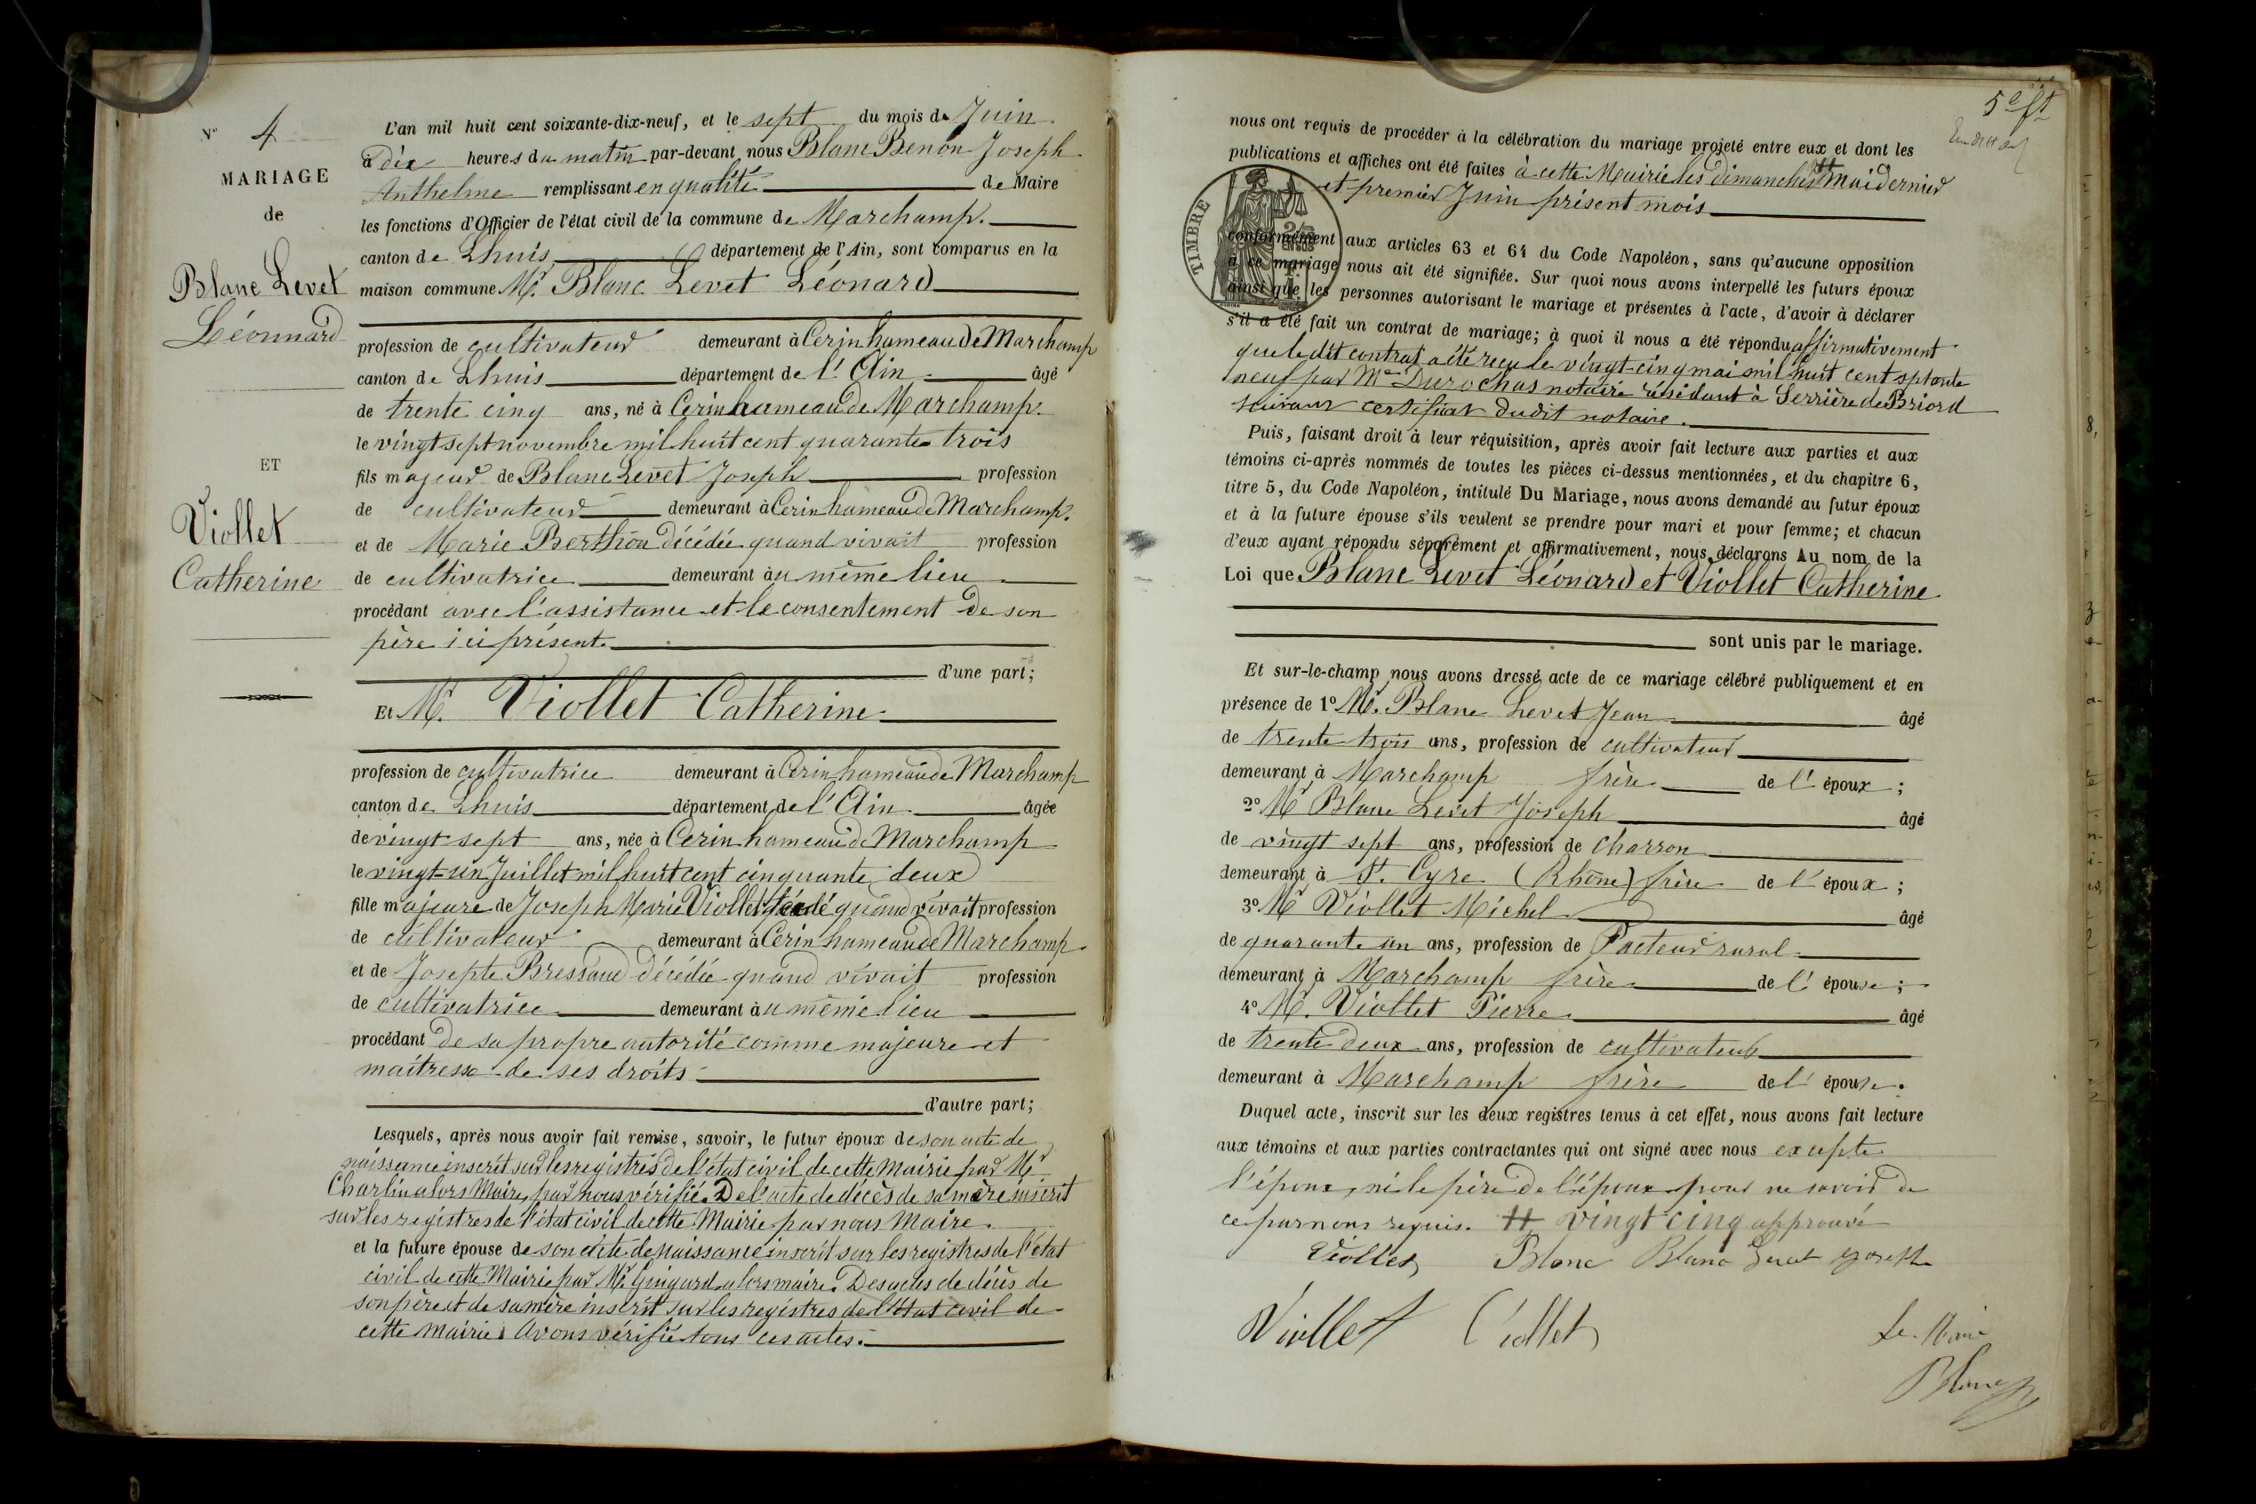 N° 4
MARIAGE
de
Blanc Levet
Léonnard
ET
Viollet
Catherine
L'an mil huit cent soixante-dix-neuf, et le sept du mois de Juin
à dix heures du matin par-devant nous Blanc Benon Joseph
Anthelme remplissant en qualité de Maire
les fonctions d'Officier de l'état civil de la commune de Marchamp.
canton de Lhuis département de l'Ain, sont comparus en la
maison commune Mr. Blanc Levet Léonard
profession de cultivateur demeurant à Cerin hameau de Marchamp
canton de Lhuis département de l'Ain âgé
de trente cinq ans, né à Cerin hameau de Marchamp.
le vingt sept novembre mil huit cent quarante trois
fils majeur de Blanc Levet Joseph profession
de cultivateur demeurant à Cerin hameau de Marchamp.
et de Marie Berthon décédée quand vivait profession
de cultivatrice demeurant au même lieu
procédant avec l'assistance et le consentement de son
père ici présent.
d'une part;
Et M. Viollet Catherine
profession de cultivatrice demeurant à Cerin hameau de Marchamp
canton de Lhuis département de l'Ain âgée
de vingt sept ans, née à Cerin hameau de Marchamp
le vingt-un Juillet mil huit cent cinquante deux
fille majeure de Joseph Marie Viollet quand vivait profession
de cultivateur demeurant à Cerin hameau de Marchamp
et de Josepte Bressand décédée quand vivait profession
de cultivatrice demeurant au même lieu
procédant de sa propre autorité comme majeure et
maîtresse de ses droits
d'autre part;
Lesquels, après nous avoir fait remise, savoir, le futur époux de son acte de
naissance inscrit sur les registres de l'état civil de cette Mairie par Mr
Charlin alors Maire, par nous vérifié. De l'acte de décès de sa mère inscrit
sur les registres de l'état civil de cette Mairie par nous Maire.
et la future épouse de son acte de naissance inscrit sur les registres de l'état
civil de cette Mairie par Mr. Guigard alors maire. Des actes de décès de
son père et de sa mère inscrit sur les registres de l'état civil de
cette Mairie. Avons vérifié tous ces actes.
5e ft
nous ont requis de procéder à la célébration du mariage projeté entre eux et dont les
publications et affiches ont été faites à cette Mairie les dimanches # mai dernier
et premier Juin présent mois
TIMBRE
conformément aux articles 63 et 64 du Code Napoléon, sans qu'aucune opposition
à ce mariage nous ait été signifiée. Sur quoi nous avons interpellé les futurs époux
ainsi que les personnes autorisant le mariage et présentes à l'acte, d'avoir à déclarer
s'il a été fait un contrat de mariage; à quoi il nous a été répondu affirmativement
que le dit contrat a été reçu le vingt-cinq mai mil huit cent septante
neuf par Me Durochas notaire résidant à Serrière de Briord
suivant certificat dudit notaire.
Puis, faisant droit à leur réquisition, après avoir fait lecture aux parties et aux
témoins ci-après nommés de toutes les pièces ci-dessus mentionnées, et du chapitre 6,
titre 5, du Code Napoléon, intitulé Du Mariage, nous avons demandé au futur époux
et à la future épouse s'ils veulent se prendre pour mari et pour femme; et chacun
d'eux ayant répondu séparément et affirmativement, nous déclarons Au nom de la
Loi que Blanc Levet Léonard et Viollet Catherine
sont unis par le mariage.
Et sur-le-champ nous avons dressé acte de ce mariage célébré publiquement et en
présence de 1° Mr. Blanc Levet Jean âgé
de trente trois ans, profession de cultivateur
demeurant à Marchamp frère de l'époux;
2° Mr Blanc Levet Joseph âgé
de vingt sept ans, profession de charron
demeurant à St. Cyre (Rhône) frère de l'époux;
3° Mr Viollet Michel âgé
de quarante un ans, profession de Facteur rural
demeurant à Marchamp frère de l'épouse;
4° Mr. Viollet Pierre âgé
de trente deux ans, profession de cultivateur
demeurant à Marchamp frère de l'épouse.
Duquel acte, inscrit sur les deux registres tenus à cet effet, nous avons fait lecture
aux témoins et aux parties contractantes qui ont signé avec nous excepté
l'époux, ni le père de l'époux pour ne savoir de
ce par nous requis. # vingt cinq approuvé
Viollet Blanc Blanc Levet Joseph
Viollet Viollet
Le Maire
Blanc